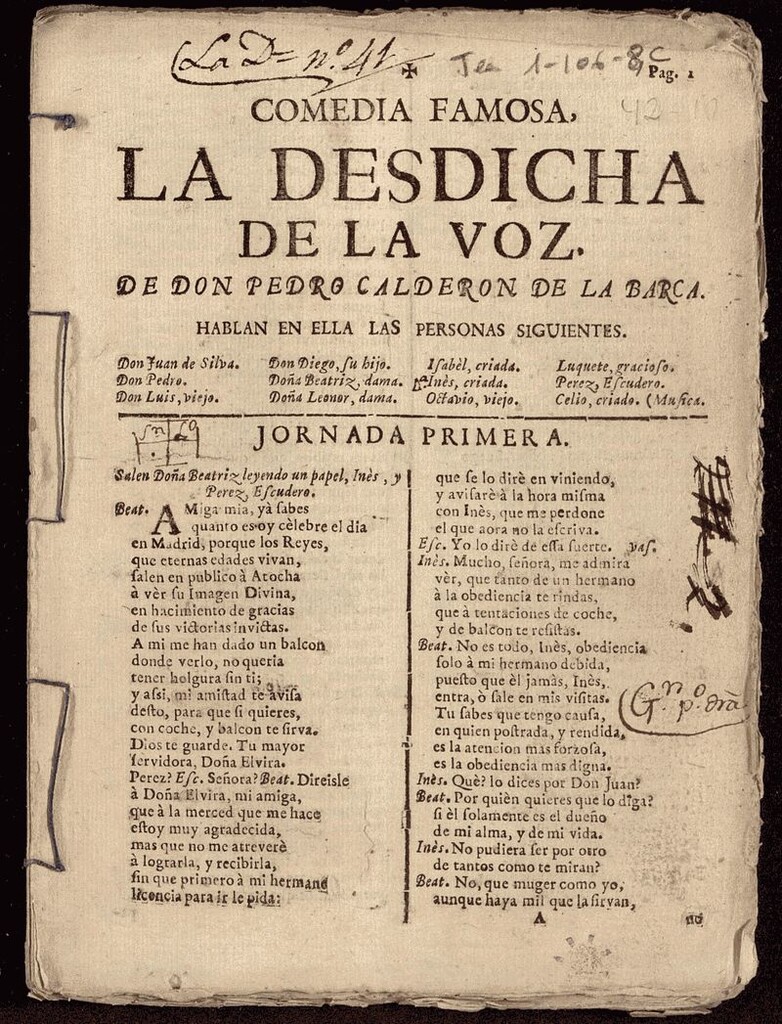 La Dª nº. 41
✠
Tea 1-106-8, C
Pag. 1
COMEDIA FAMOSA,
LA DESDICHA
DE LA VOZ.
DE DON PEDRO CALDERON DE LA BARCA.
HABLAN EN ELLA LAS PERSONAS SIGUIENTES.
Don Juan de Silva. Don Diego, ſu hijo. Iſabèl, criada. Luquete, gracioſo.
Don Pedro. Doña Beatriz, dama. Inès, criada. Perez, Eſcudero.
Don Luis, viejo. Doña Leonor, dama. Octavio, viejo. Celio, criado. (Muſica.
JORNADA PRIMERA.
Salen Doña Beatriz leyendo un papel, Inès, y
Perez, Eſcudero.
Beat. AMiga mia, yà ſabes
quanto es oy cèlebre el dia
en Madrid, porque los Reyes,
que eternas edades vivan,
ſalen en publico à Atocha
à vèr ſu Imagen Divina,
en hacimiento de gracias
de ſus victorias invictas.
A mi me han dado un balcon
donde verlo, no queria
tener holgura ſin ti;
y aſsi, mi amiſtad te aviſa
deſto, para que ſi quieres,
con coche, y balcon te ſirva.
Dios te guarde. Tu mayor
ſervidora, Doña Elvira.
Perez? Eſc. Señora? Beat. Direisle
à Doña Elvira, mi amiga,
que à la merced que me hace
eſtoy muy agradecida,
mas que no me atreverè
à lograrla, y recibirla,
ſin que primero à mi hermano
licencia para ir le pida:
que ſe lo dirè en viniendo,
y aviſarè à la hora miſma
con Inès, que me perdone
el que aora no la eſcriva.
Eſc. Yo lo dirè de eſſa ſuerte. vaſ.
Inès. Mucho, ſeñora, me admira
vèr, que tanto de un hermano
à la obediencia te rindas,
que à tentaciones de coche,
y de balcon te reſiſtas.
Beat. No es todo, Inès, obediencia
ſolo à mi hermano debida,
pueſto que èl jamàs, Inès,
entra, ò ſale en mis viſitas.
Tu ſabes que tengo cauſa,
en quien poſtrada, y rendida,
es la atencion mas forzoſa,
es la obediencia mas digna.
Inès. Què? lo dices por Don Juan?
Beat. Por quièn quieres que lo diga?
ſi èl ſolamente es el dueño
de mi alma, y de mi vida.
Inès. No pudiera ſer por otro
de tantos como te miran?
Beat. No, que muger como yo,
aunque haya mil que la ſirvan,
A no